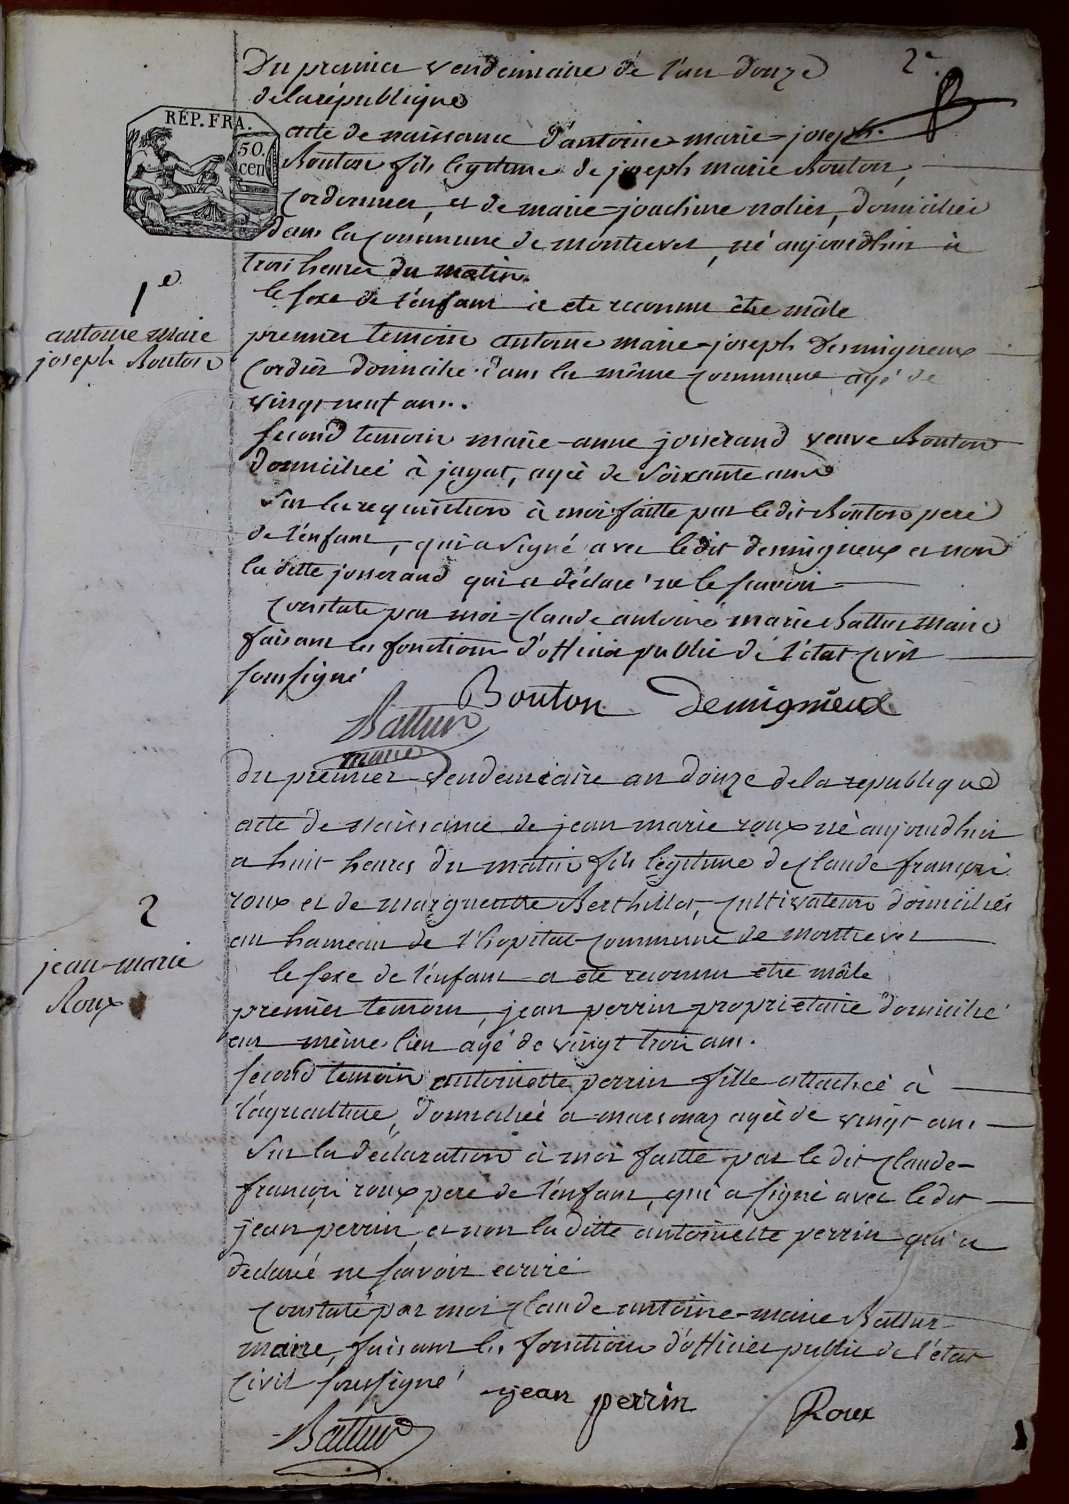 2e
Du premier vendemiaire de l'an douze
de la république
RÉP. FRA.
50.
cen
acte de naissance d'antoine-marie-joseph
Bouton fils legitime de joseph marie Bouton,
cordonnier, et de marie-joachine nolier, domiciliés
dans la commune de montrevel, né aujourdhui à
trois heures du matin.
le sexe de l'enfant a été reconnu être mâle
1e
antoine marie
joseph Bouton
premier temoin antoine marie-joseph Desmigneux
cordier domicilié dans la même commune agé de
vingt neuf ans.
second temoin marie-anne josserand veuve Bouton
domiciliée à jayat, agée de soixante ans
Sur la requisition à moi faitte par le dit Bouton pere
de l'enfant, qui a signé avec le dit desmigneux et non
la ditte josserand qui a déclaré ne le scavoir
constaté par moi claude antoine marie Battur maire
faisant les fonctions d'officier public de l'état civil
soussigné
Bouton Demigneux
Battur
maire
du premier vendemiaire an douze de la republique
acte de naissance de jean marie roux né aujourdhui
a huit heures du matin fils légitime de claude françois
roux et de marguerite Berthillot, cultivateurs domiciliés
au hameau de l'hopital commune de montrevel
2
jean-marie
Roux
le sexe de l'enfant a été reconnu être mâle
premier temoin, jean perrin proprietaire domicilié
au même lieu agé de vingt trois ans.
second temoin antoinette perrin fille attachée à
l'agriculture, domiciliée a marsonas agée de vingt ans
Sur la déclaration à moi faitte par le dit claude-
françois roux pere de l'enfant, qui a signé avec le dit
jean perrin, et non la ditte antoinette perrin qui a
declaré ne scavoir ecrire
constaté par moi claude antoine-marie Battur
maire, faisant les fonctions d'officier public de l'état
civil soussigné
jean perrin Roux
Battur